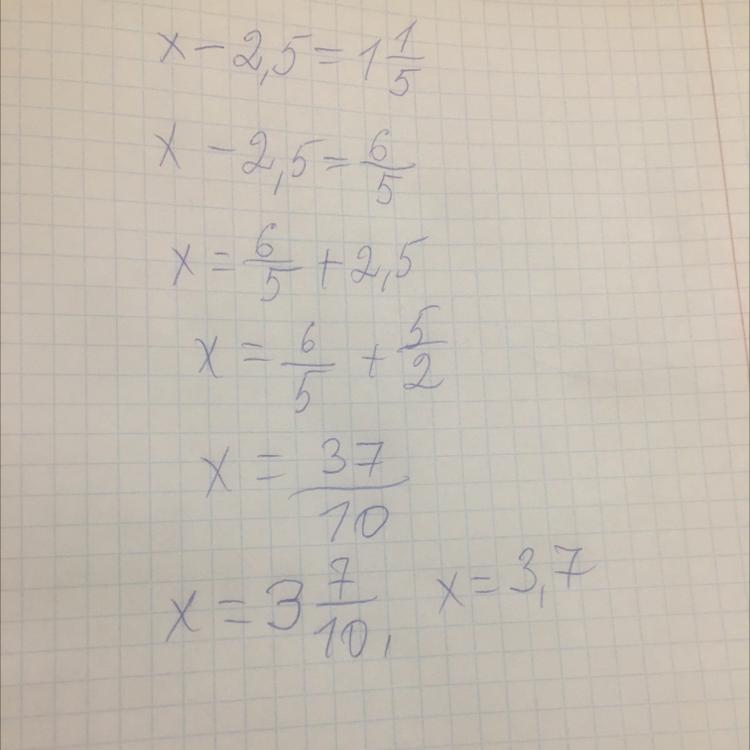 x - 2,5 = 1 1/5
x - 2,5 = 6/5
x = 6/5 + 2,5
x = 6/5 + 5/2
x = 37/10
x = 3 7/10, x = 3,7